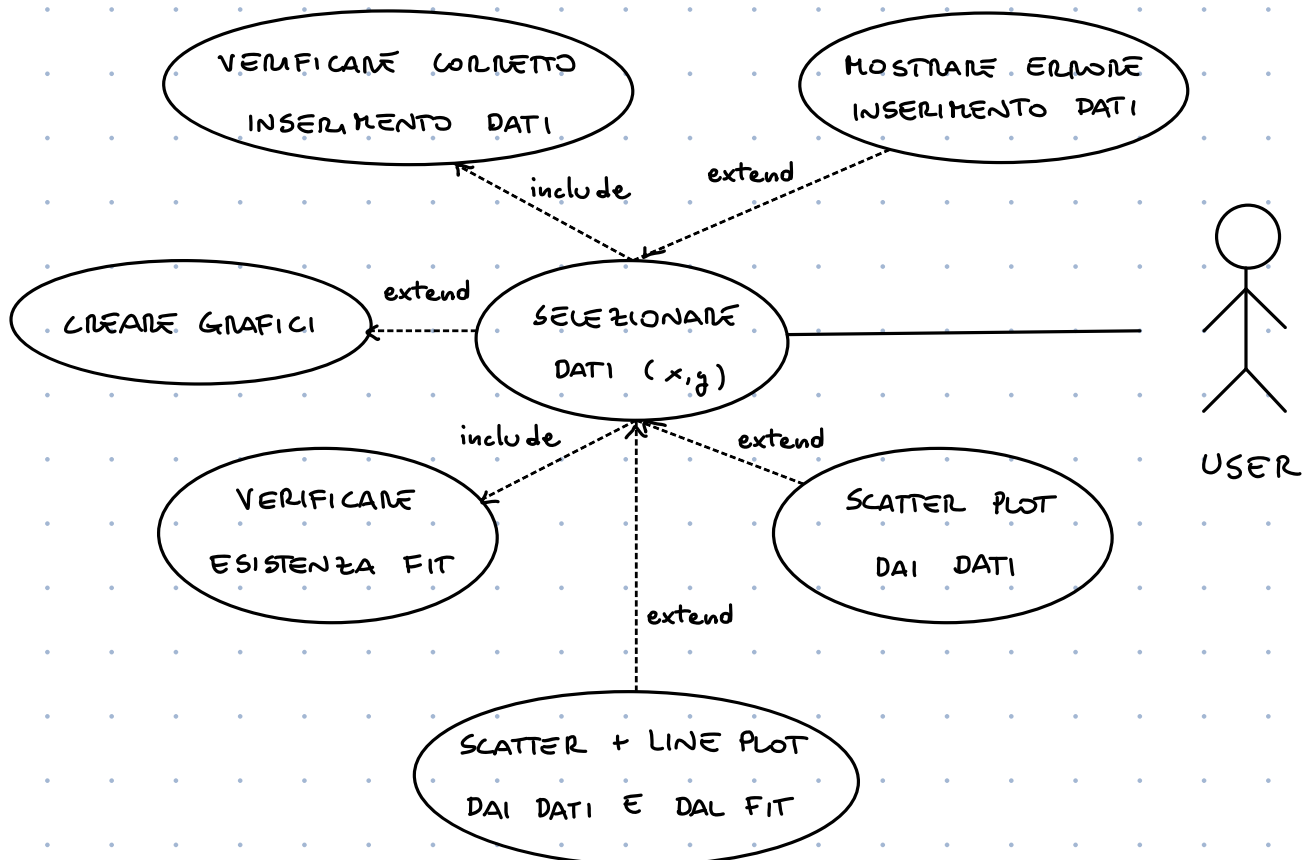 VERIFICARE CORRETTO
INSERIMENTO DATI
MOSTRARE ERRORE
INSERIMENTO DATI
include
extend
CREARE GRAFICI
extend
SELEZIONARE
DATI (x,y)
USER
include
extend
VERIFICARE
ESISTENZA FIT
SCATTER PLOT
DAI DATI
extend
SCATTER + LINE PLOT
DAI DATI E DAL FIT